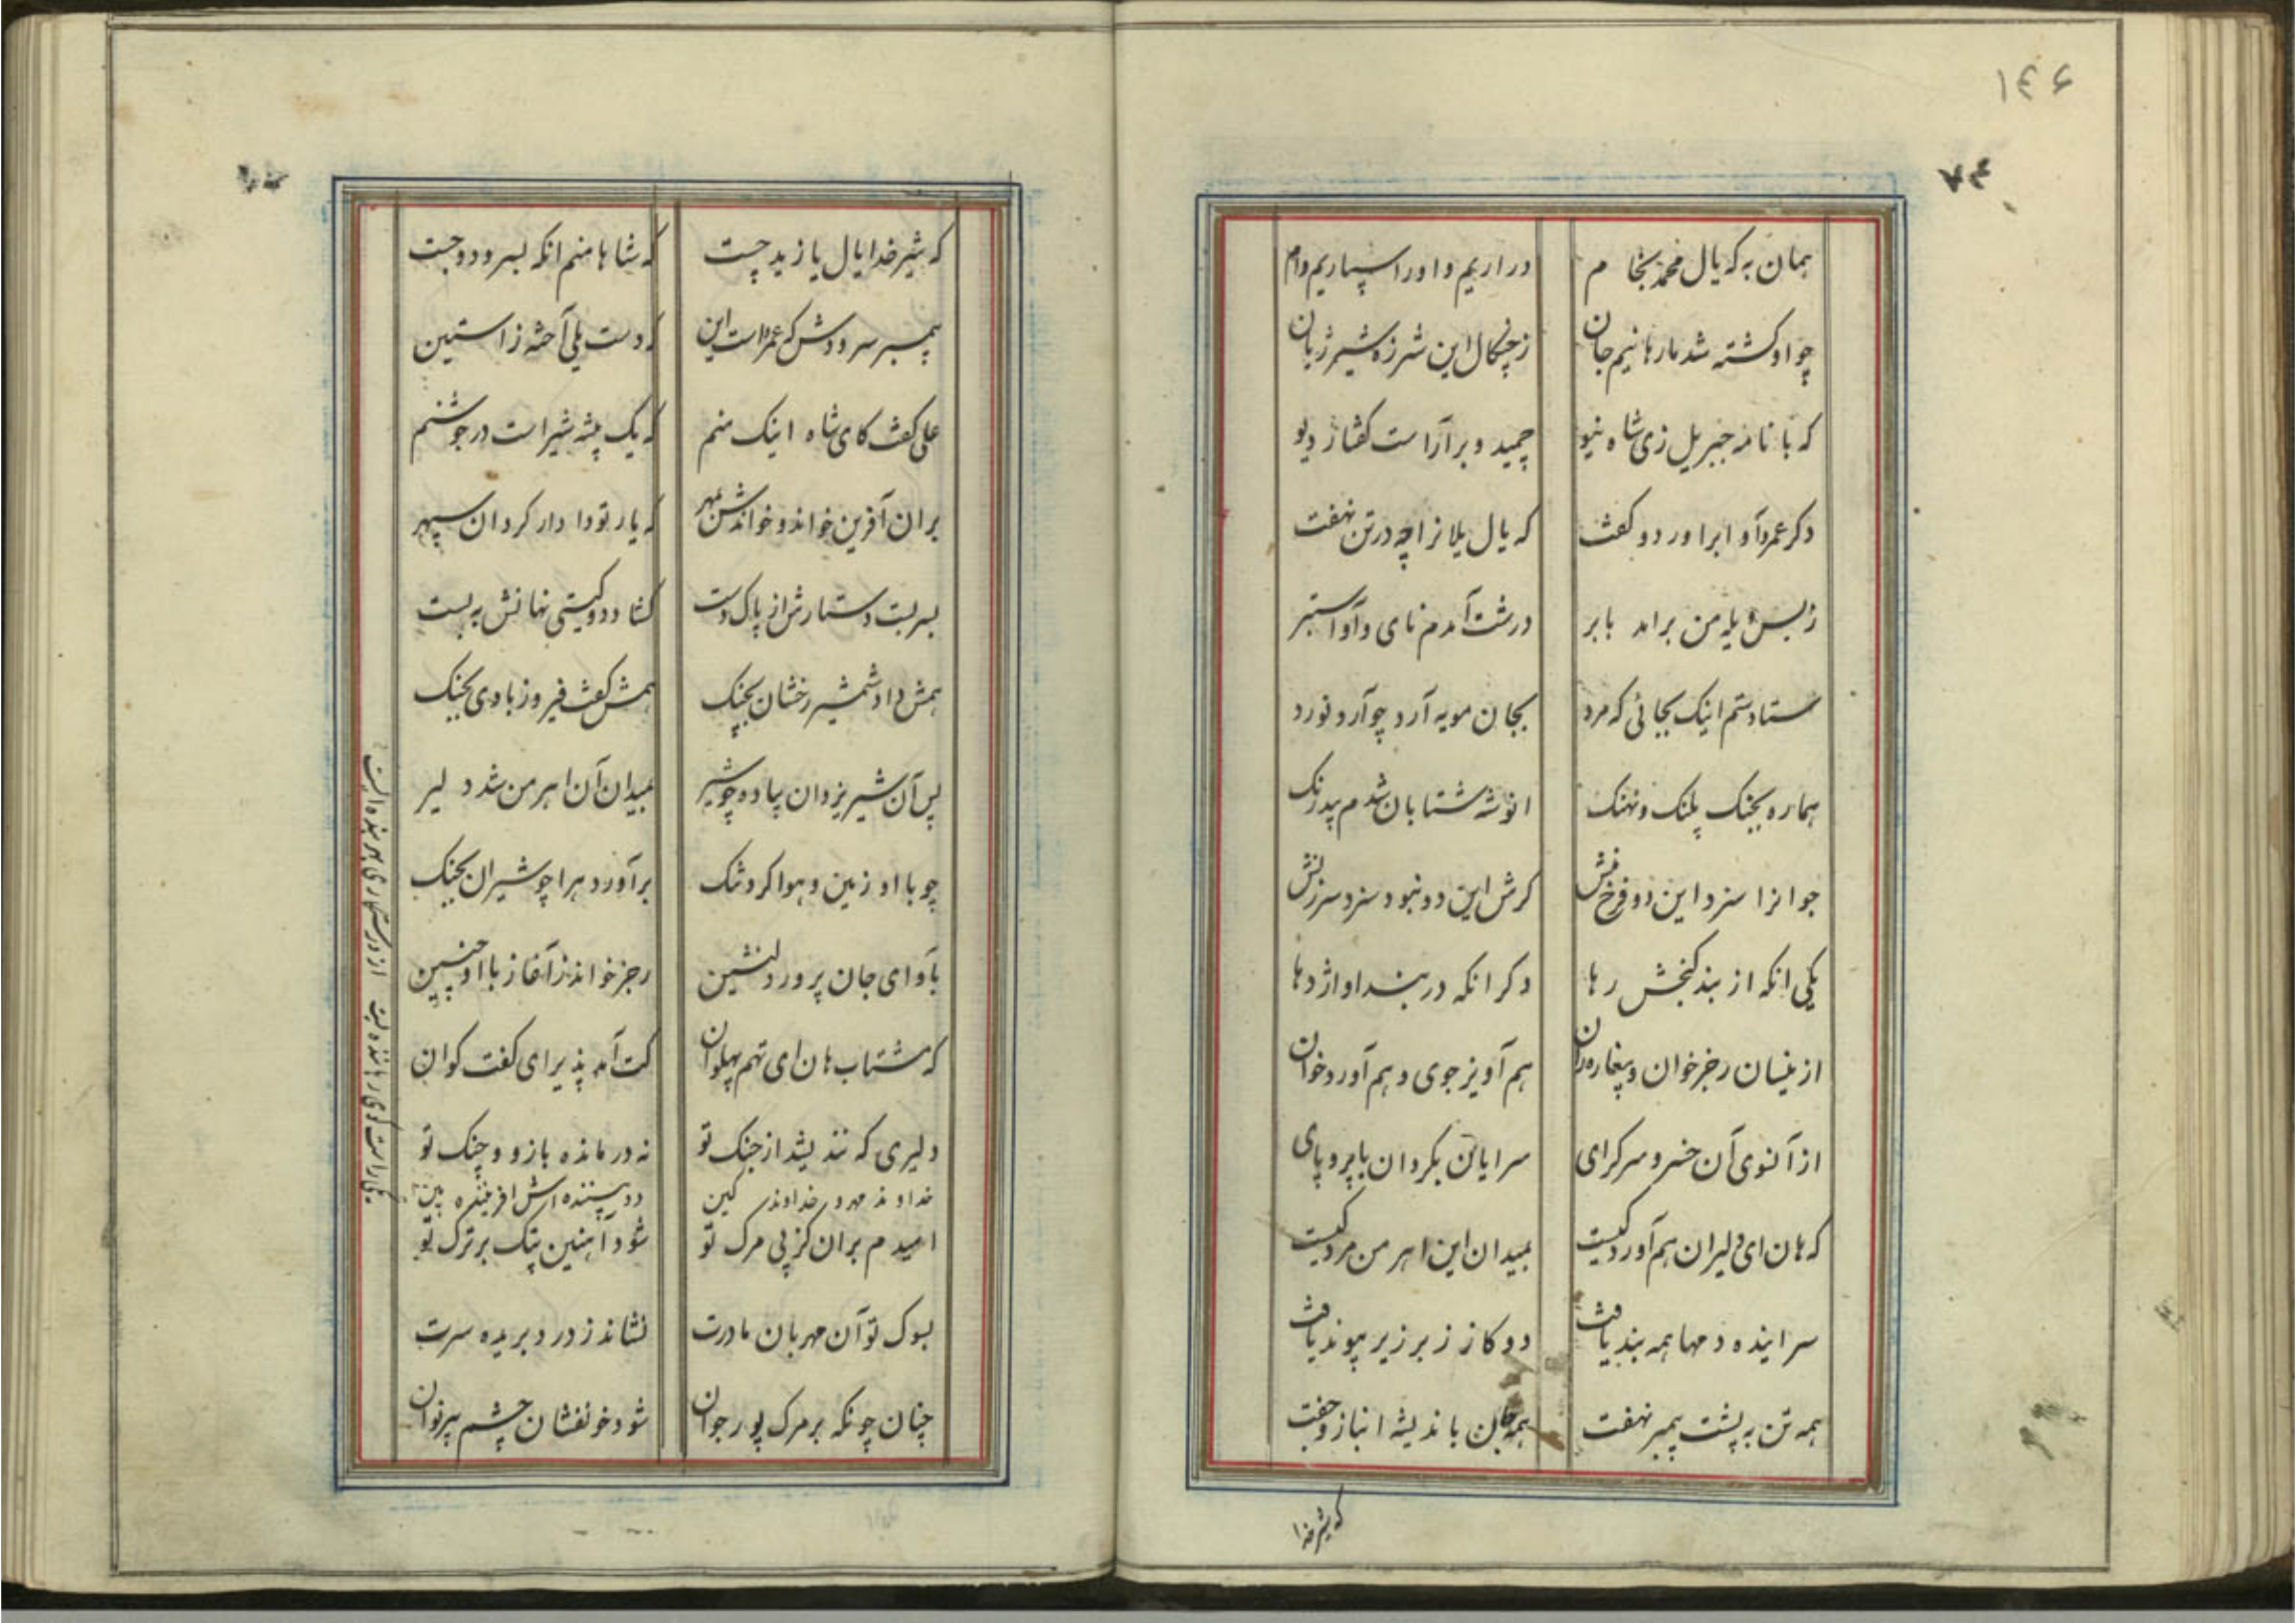 ۱۴۶
همان به که یال محمد بخام
در اریم و او را سپاریم وام
چو او کشته شد ما رهانیم جان
ز چنکال این شرزه شیر ژیان
که با نامه جبریل زی شاه نیو
چمید و بر آراست کفتار دیو
دکر عمرو آوا براورد و کفت
که یال یلانرا چه در تن نهفت
ز بس یله من برامد بابر
درشت آمدم نای و آوا ستبر
ستادستم اینک بجائی که مرد
بجان مویه آرد چو آرد نورد
هماره بجنک پلنک و نهنک
انوشه شتابان شدم بیدرنک
جوانرا سزد این دو فرخ منش
کرش این دو نبود سزد سرزنش
یکی انکه از بند کنجش رها
دکر انکه در بند او اژدها
ازینسان رجز خوان و پیغاره ران
هم آویز جوی و هم آورد خوان
از آنسوی آن خسرو سرکرای
سرایان بکردان با پر و پای
که هان ای دلیران هم آورد کیست
بمیدان این اهرمن مرد کیست
سراینده دمها همه بند یافت
دو کاز زبر زیر پیوند یافت
همه تن به پشت پیمبر نهفت
همه جان باندیشه انباز و جفت
که شیر خدا
که شیر خدا یال یازید چست
که شاها منم انکه بسرود و جست
پیمبر سرودش که عمرو است این
که دست یلی آخته ز استین
علی کفت کای شاه اینک منم
که یک بیشه شیر است در جوشنم
بران آفرین خواند و خواندش بمهر
که یار تو دادار کردان سپهر
بسر بست دستارش از پاک دست
کشاد دو کیتی نهانش به بست
همش داد شمشیر رخشان بچنک
همش کفت فیروز بادی بجنک
پس آن شیر یزدان پیاده چو شیر
بمیدان آن اهرمن شد دلیر
چو با او زمین و هوا کرد تنک
برآورد هرا چو شیران بجنک
بآوای جان پرور دلنشین
رجز خواند ز آغاز با او چنین
که مشتاب هان ای تهم پهلوان
کت آمد پذیرای کفت کوان
دلیری که نندیشد از جنک تو
نه درمانده بازو و چنک تو
خداوند مهر و خداوند کین
دو بیننده اش افریننده بین
امیدم بران کز پی مرک تو
شود آهنین پتک بر ترک تو
بسوک تو آن مهربان مادرت
نشاند ز درد بریده سرت
چنان چونکه بر مرک پور جوان
شود خونفشان چشم پیر نوان